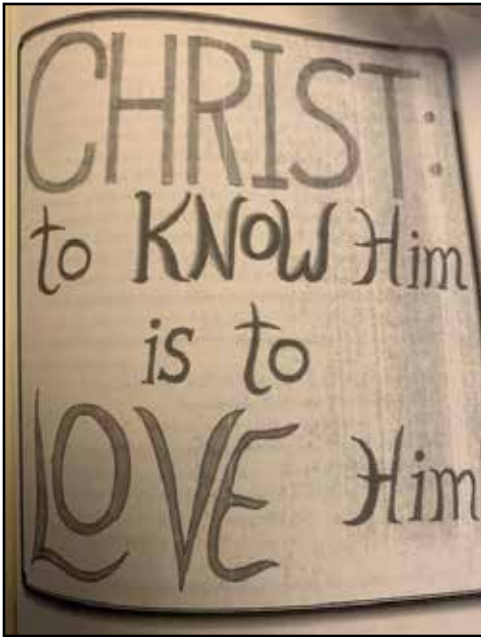 CHRIST:
to KNOW Him
is to
LOVE Him